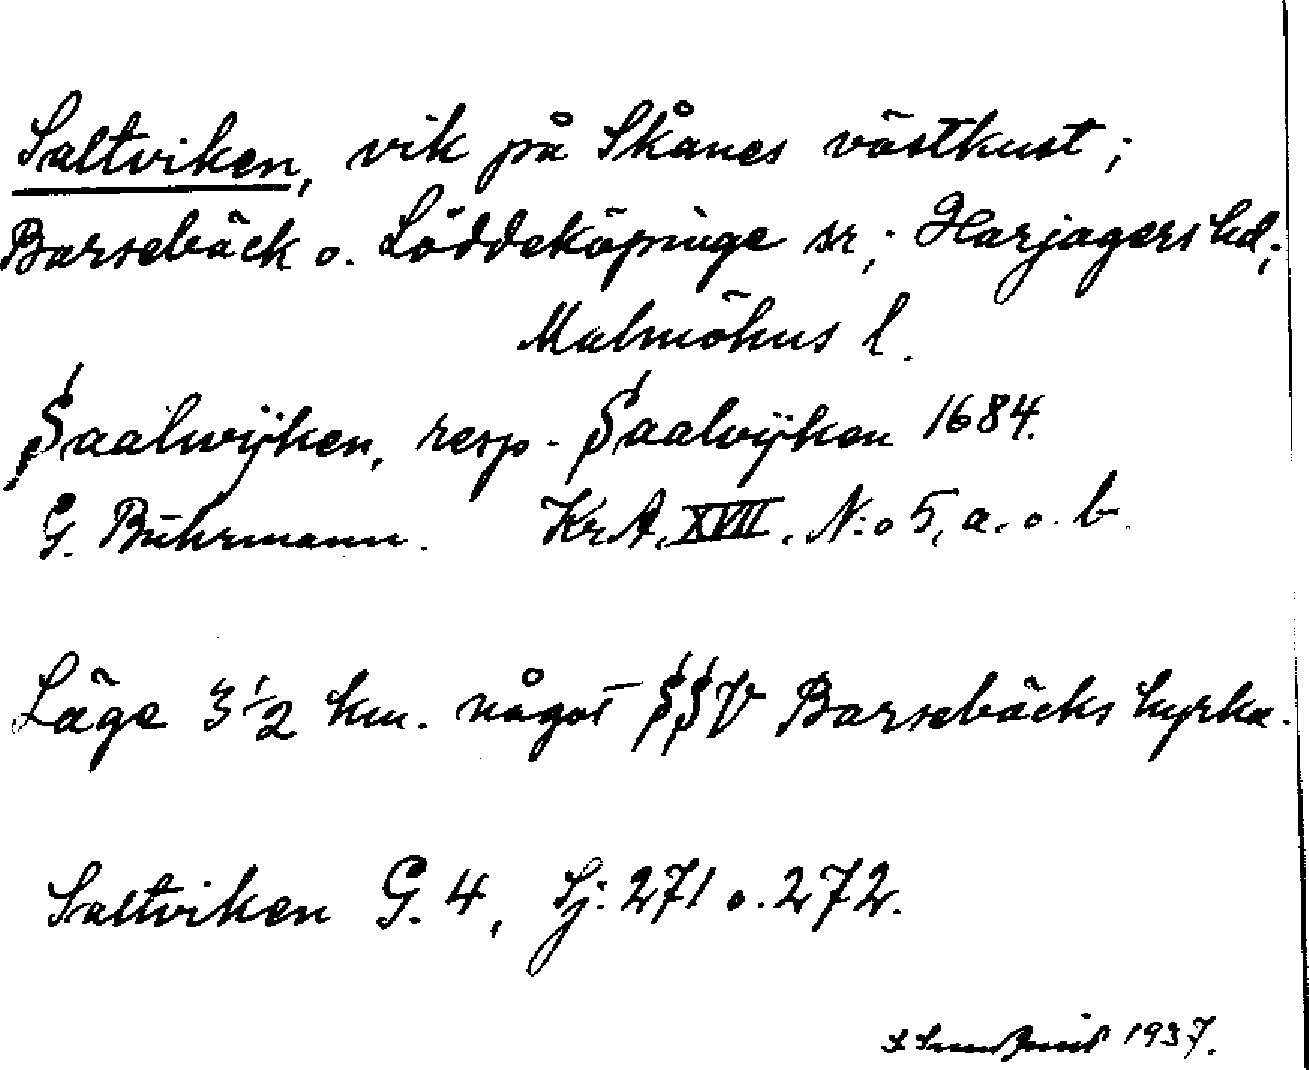 Saltviken, vik på Skånes västkust;
Barsebäck o. Löddeköpinge sr; Harjagers hd;
Malmöhus l.
Saalwijken, resp. Saalvijken 1684.
G. Buhrmann. Kr.A. XVIII. N:o 5, a. o. b.
Läge 3 1/2 km. något SSV Barsebäcks kyrka.
Saltviken G. 4, Sj: 271 o. 272.
1937.